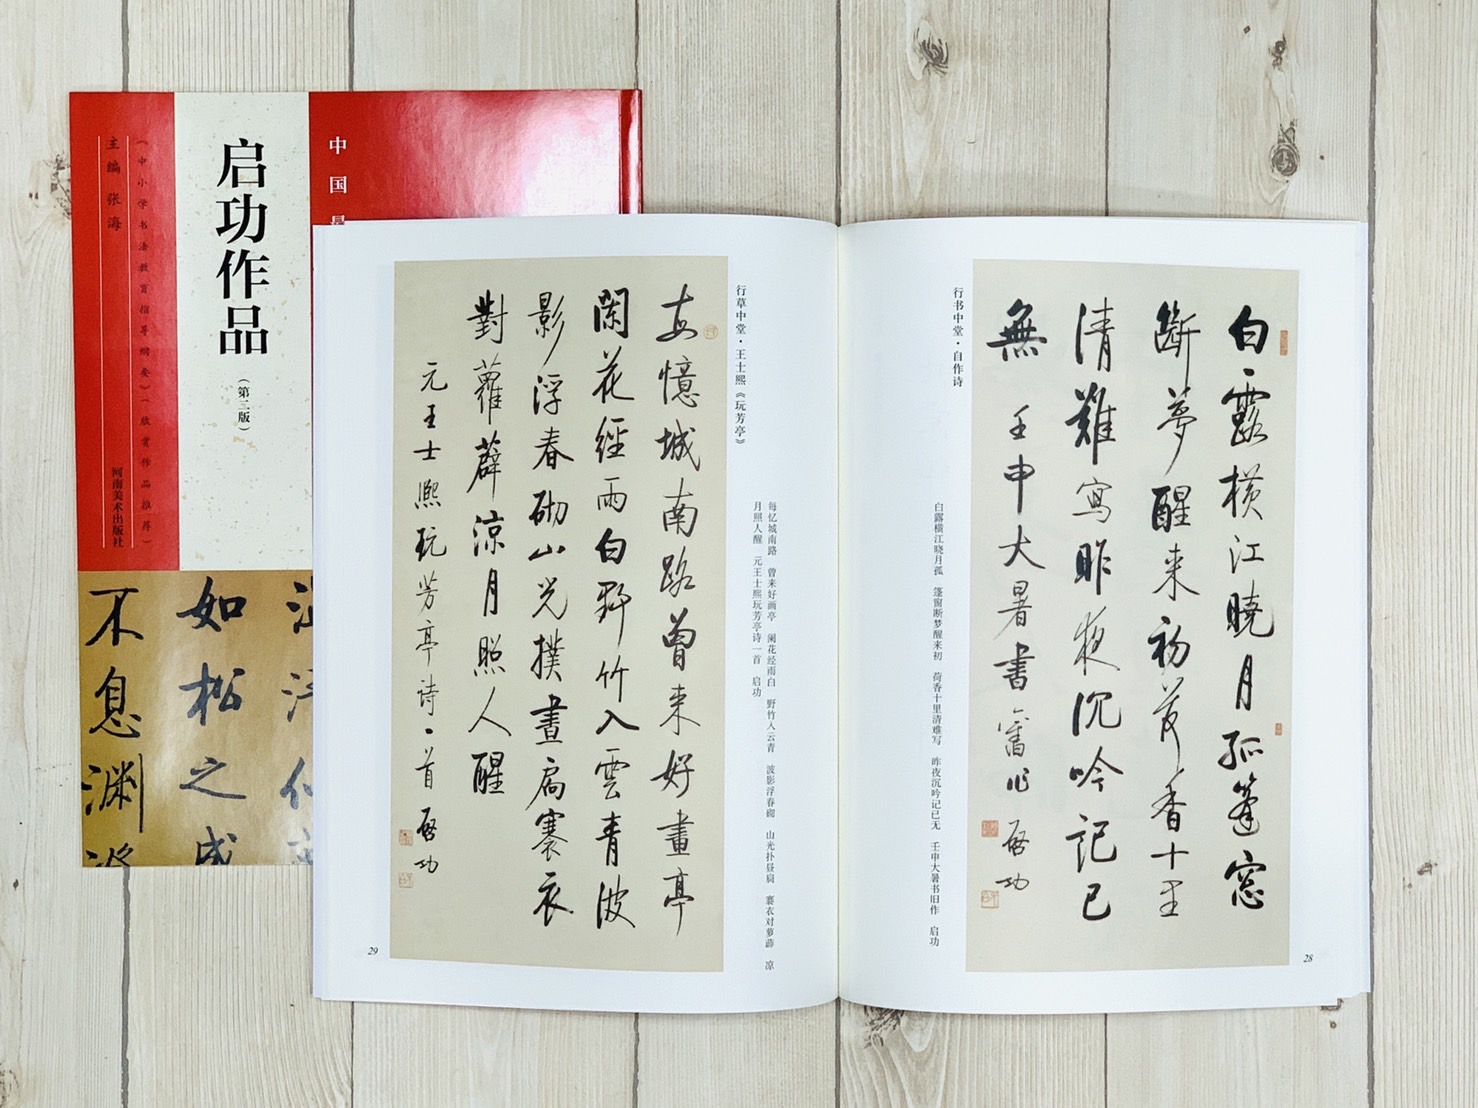 中国
启功作品
（第二版）
《中小学书法教育指导纲要》（欣赏作品推荐）
主编 张海
河南美术出版社
如松之
不息渊
白露橫江曉月孤篷窓
斷夢醒来初荷香十里
清難寫昨夜沉吟記已
無 壬申大暑書舊作 啓功
行书中堂·自作诗
白露横江晓月孤 篷窗断梦醒来初 荷香十里清难写 昨夜沉吟记已无 壬申大暑书旧作 启功
28
行草中堂·王士熙《玩芳亭》
每忆城南路 曾来好画亭 阑花经雨白 野竹入云青 波影浮春砌 山光扑昼扃 褰衣对萝薜 凉
月照人醒 元王士熙玩芳亭诗一首 启功
每憶城南路曾来好畫亭
闌花經雨白野竹入雲青波
影浮春砌山光撲晝扃褰衣
對蘿薜涼月照人醒
元王士熙玩芳亭诗一首 啓功
29